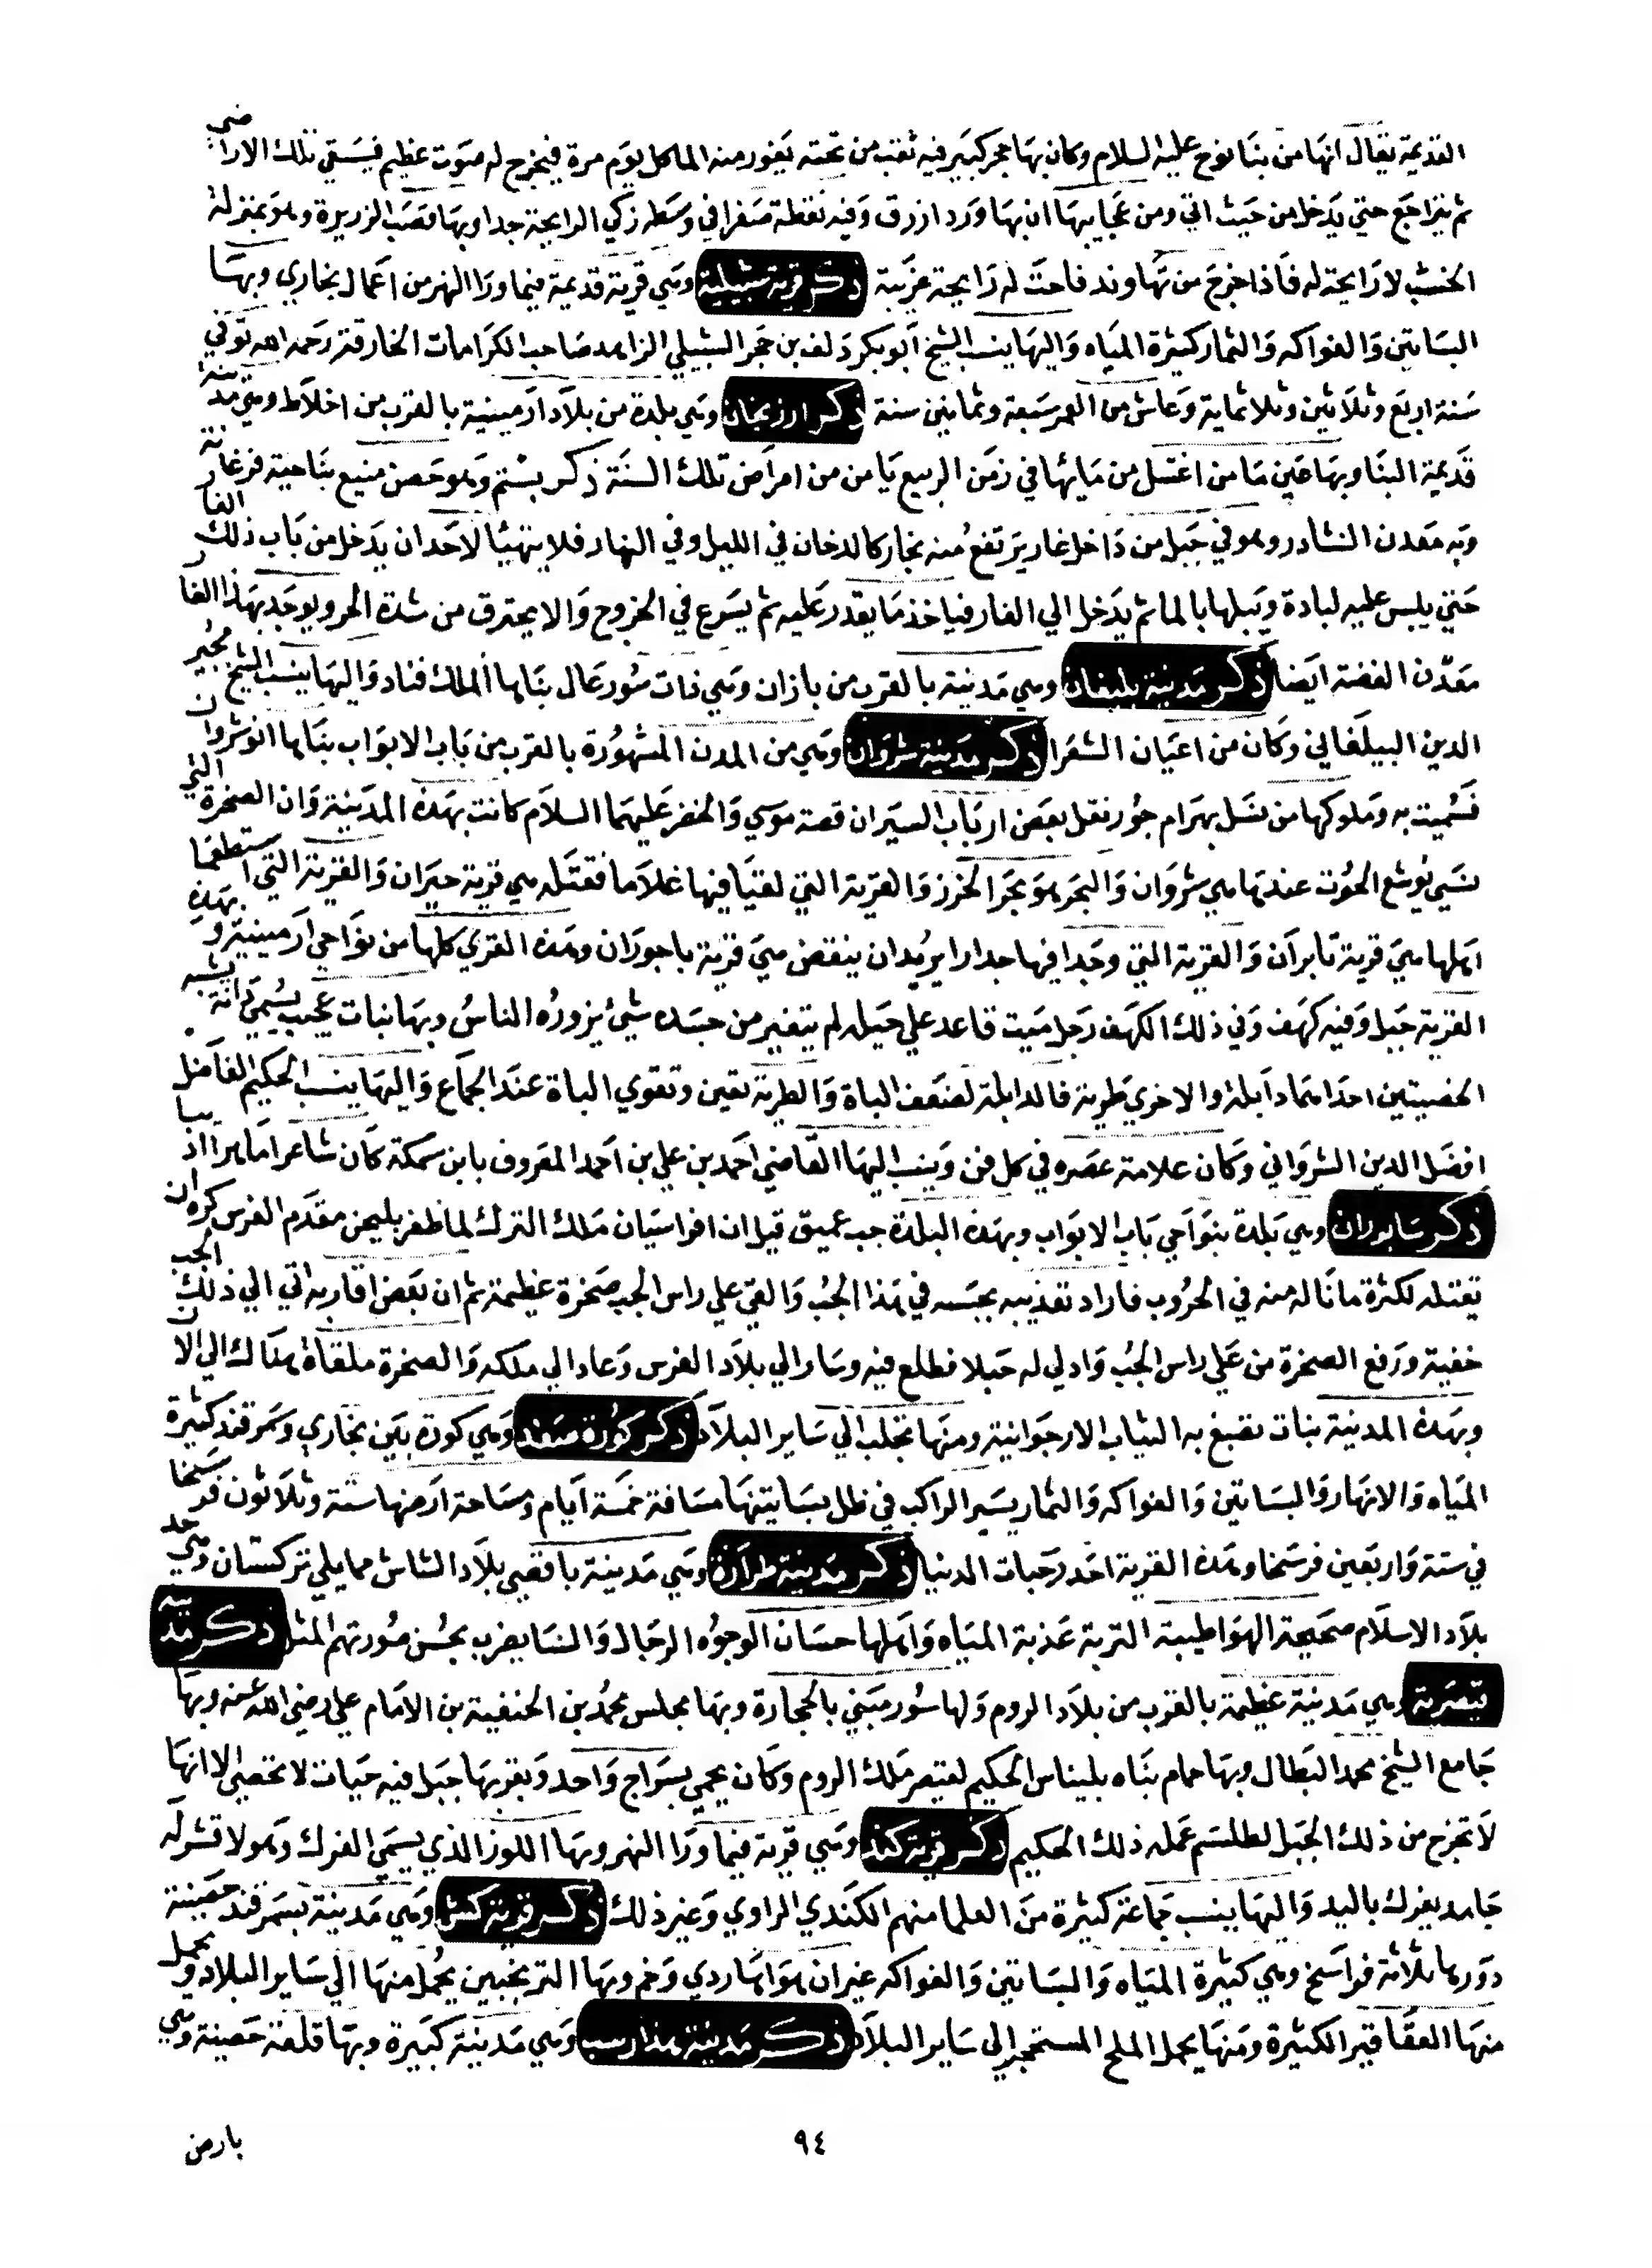 القديمة يقال انها من بنا نوح عليه السلام وكان بها حجر كبير فيه ثقب من تحته يفور منه الما كل يوم مرة فيخرج له صوت عظيم فيسقي تلك الاراضي
ثم يتراجع حتي يدخل من حيث اتي ومن عجايبها ان بها ورد ازرق وفيه نقطة صفرا في وسطه زكي الرايحة جدا وبها قصب الزريرة وهو بمنزلة
الخشب لا رايحة له فاذا خرج من نهاوند فاحت له رايحة غريبة ذكر قرية شبيلية وهي قرية قديمة فيما ورا النهر من اعمال بخاري وبها
البساتين والفواكه والثمار كثيرة المياه واليها ينسب الشيخ ابو بكر دلف بن حجر الشبيلي الزاهد صاحب الكرامات الخارقة رحمه الله توفي
سنة اربع وثلاثين وثلاثماية وعاش من العمر سبعة وثمانين سنة ذكر ارزنجان وهي بلدة من بلاد ارمينية بالقرب من اخلاط وهي مدينة
قديمة البنا وبها عين ما من اغتسل من مايها في زمن الربيع يامن من امراض تلك السنة ذكر بستم وهو حصن منيع بناحية فرغانة
وبه معدن النشادر وهو في جبل من داخل غار يرتفع منه بخار كالدخان في الليل وفي النهار فلا يتهيا لاحد ان يدخل من باب ذلك الغار
حتي يلبس عليه لبادة ويبلها بالما ثم يدخل الي الغار فياخذ ما يقدر عليه ثم يسرع في الخروج والا يحترق من شدة الحر ويوجد بهذا الغار
معدن الفضة ايضا ذكر مدينة بيلقان وهي مدينة بالقرب من باران وهي ذات سور عال بناها الملك قباد واليها ينسب الشيخ مجير
الدين البيلقاني وكان من اعيان الشعرا ذكر مدينة شروان وهي من المدن المشهورة بالقرب من باب الابواب بناها انوشروان
فسميت به وملوكها من نسل بهرام جور نقل بعض ارباب السير ان قصة موسي والخضر عليهما السلام كانت بهذه المدينة وان الصخرة التي
نسي يوشع الحوت عندها هي شروان والبحر هو بحر الخزر والقرية التي لقيا فيها غلاما فقتله هي قرية حيزان والقرية التي استطعما
اهلها هي قرية تابران والقرية التي وجدا فيها جدارا يريد ان ينقض هي قرية باجوران وهذه القري كلها من نواحي ارمينية وبهذه
القرية جبل وفيه كهف وفي ذلك الكهف رجل ميت قاعد علي حيله لم يتغير من جسده شئ يزوره الناس وبها نبات عجيب يسمي انه يشبه
الخصيتين احداهما دابلة والاخري طرية فالدابلة لضعف الباة والطرية تعين وتقوي الباة عند الجماع واليها ينسب الحكيم الفاضل
افضل الدين الشرواني وكان علامة عصره في كل فن وينسب اليها القاضي احمد بن علي بن احمد المعروف بابن سمكة كان شاعرا ماهرا اديبا
ذكر سابوران وهي بلدة بنواحي باب الابواب وبهذه البلدة جب عميق قيل ان افراسيان ملك الترك لما ظفر بليجن مقدم الفرس كره ان
يقتله لكثرة ما ناله منه في الحروب فاراد تعذيبه بحبسه في هذا الجب والقي علي راس الجب صخرة عظيمة ثم ان بعض اقاربه اتي الي ذلك الجب
خفية ورفع الصخرة من علي راس الجب وادلي له حبلا فطلع فيه وسار الي بلاد الفرس وعاد الي ملكه والصخرة ملقاة هناك الي الان
وبهذه المدينة نبات تصبغ به الثياب الارجوانية ومنها تجلب الي ساير البلاد ذكر كورة سغد وهي كورة بين بخاري وسمرقند كثيرة
المياه والانهار والبساتين والفواكه والثمار يسير الراكب في ظل بساتينها مسافة خمسة ايام ومساحة ارضها ستة وثلاثون فرسخا
في ستة واربعين فرسخا وهذه القرية احد رحبات الدنيا ذكر مدينة طراز وهي مدينة باقصي بلاد الشاش مما يلي تركستان وهي حد
بلاد الاسلام صحيحة الهوا طيبة التربة عذبة المياه واهلها حسان الوجوه الرجال والنسا يضرب بحسن صورتهم المثل ذكر مدينة
قيصرية وهي مدينة عظيمة بالقرب من بلاد الروم ولها سور مبني بالحجارة وبها مجلس محمد بن الحنفية بن الامام علي رضي الله عنه وبها
جامع الشيخ محمد البطال وبها حمام بناه بليناس الحكيم لقيصر ملك الروم وكان يحمي بسراج واحد وبقربها جبل فيه حيات لا تحصي الا انها
لا تخرج من ذلك الجبل لطلسم عمله ذلك الحكيم ذكر قرية كند وهي قرية فيما ورا النهر وبها اللوز الذي يسمي الفرك وهو لا قشر له
جامد يفرك باليد واليها ينسب جماعة كثيرة من العلما منهم الكندي الراوي وغير ذلك ذكر قرية كش وهي مدينة بسمرقند حصينة
دورها ثلاثة فراسخ وهي كثيرة المياه والبساتين والفواكه غير ان هوايها ردي وخم وبها الترنجبين يحمل منها الي ساير البلاد ويحمل
منها العقاقير الكثيرة ومنها يحمل الملح المستحجر الي ساير البلاد ذكر مدينة وهي مدينة كبيرة وبها قلعة حصينة وهي
٩٤
بارض